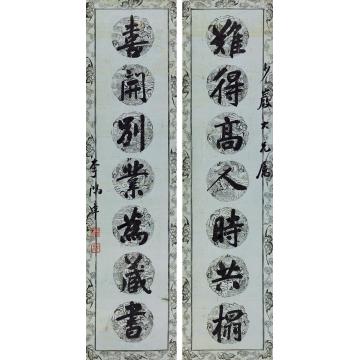 難得高人時共榻
大兄屬
喜開別業為藏書
李鴻章